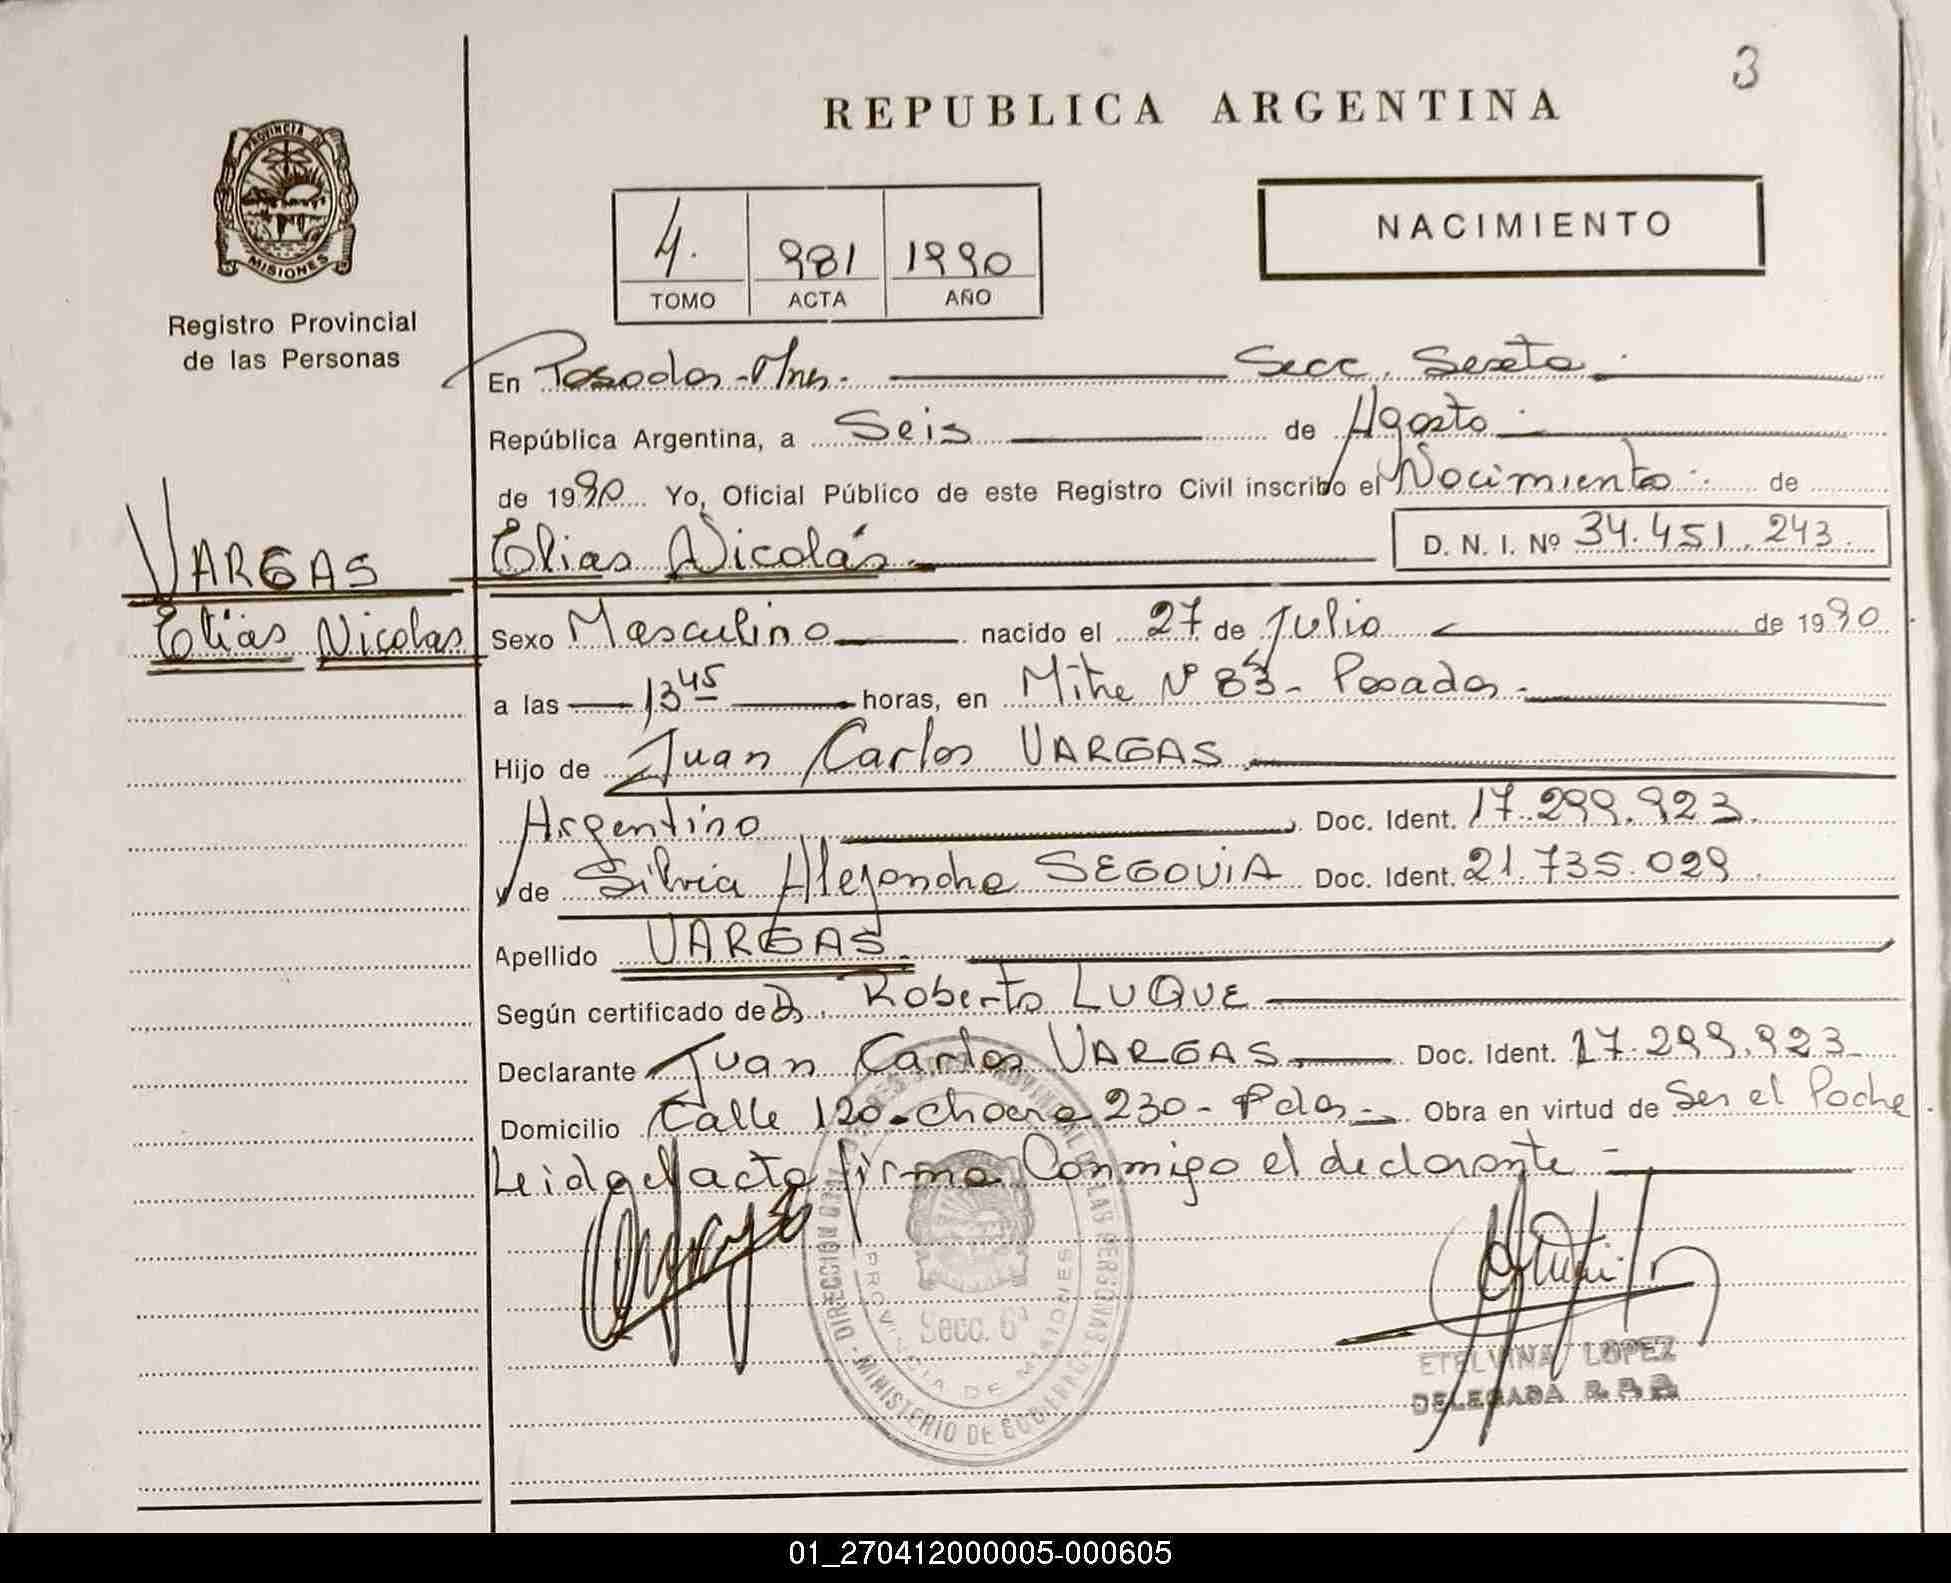 3
REPUBLICA ARGENTINA
PROVINCIA DE MISIONES
NACIMIENTO
4. 981 1990
TOMO ACTA AÑO
Registro Provincial
de las Personas
En Posadas-Mnes. Secc. Sexta
República Argentina, a Seis de Agosto
de 1990 Yo, Oficial Público de este Registro Civil inscribo el Nacimiento de
VARGAS
Elias Nicolás D. N. I. Nº 34.451.243
Elías Nicolas
Sexo Masculino nacido el 27 de Julio de 1990
a las 13 45 horas, en Mitre Nº - Posadas
Hijo de Juan Carlos VARGAS
Argentino Doc. Ident. 17.299.923
y de Silvia Alejandra SEGOVIA Doc. Ident. 21.735.029
Apellido VARGAS
Según certificado de Dr. Roberto LUQUE
Declarante Juan Carlos VARGAS Doc. Ident. 17.299.923
Domicilio Calle 120-chacra 230- Pdas- Obra en virtud de Ser el Padre
Leida el acta firma Conmigo el declarante
DIRECCION GRAL. REGISTRO PROVINCIAL DE LAS PERSONAS
MINISTERIO DE GOBIERNO
PROVINCIA DE MISIONES
Secc. 6ª
ETELVINA LOPEZ
DELEGADA
01_270412000005-000605